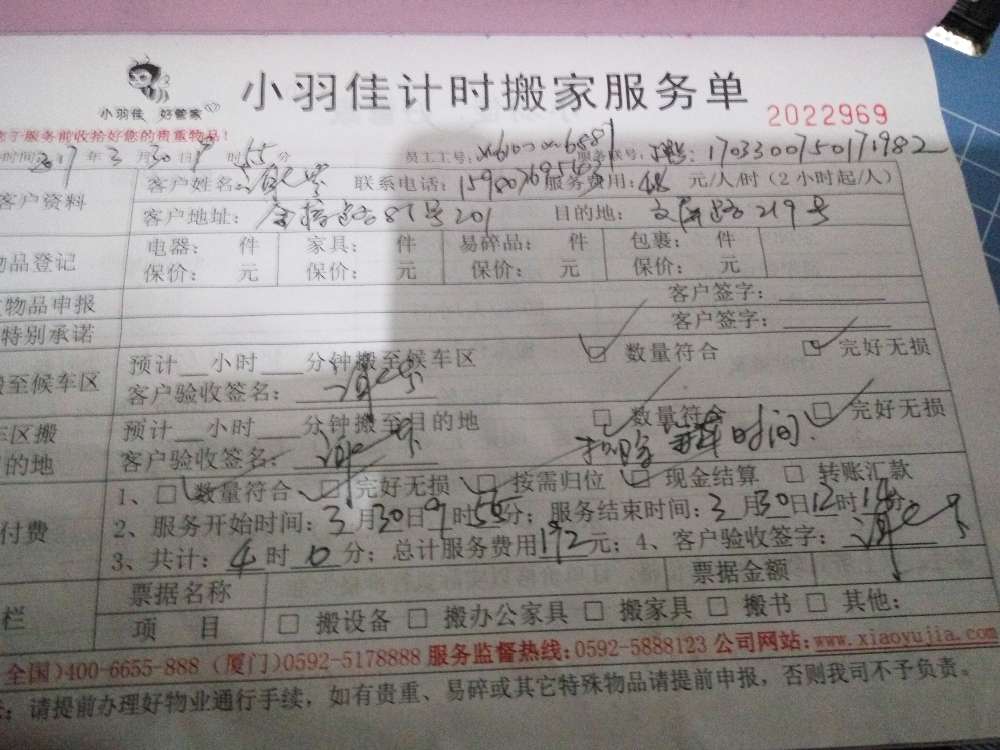 小羽佳 好管家
小羽佳计时搬家服务单
2022969
服务前收拾好您的贵重物品！
时间: 年 3 月 30 日 9 时 55 分 员工工号: 服务账号: 1703300750171982
客户资料 客户姓名: 联系电话: 服务费用: 48 元/人/时（2小时起/人）
客户地址: 87号201 目的地: 219号
物品登记 电器: 件 家具: 件 易碎品: 件 包裹: 件
保价: 元 保价: 元 保价: 元 保价: 元
物品申报 客户签字:
特别承诺 客户签字:
搬至候车区 预计 小时 分钟搬至候车区 □ 数量符合 □ 完好无损
客户验收签名:
车区搬 预计 小时 分钟搬至目的地 □ 数量符合 □ 完好无损
的地 客户验收签名: 时间
1、□ 数量符合 □ 完好无损 □ 按需归位 □ 现金结算 □ 转账汇款
付费 2、服务开始时间: 3 月 30 日 9 时 55 分; 服务结束时间: 3 月 30 日 12 时 分
3、共计: 4 时 0 分; 总计服务费用 192 元; 4、客户验收签字:
栏 票据名称 票据金额
项 目 □ 搬设备 □ 搬办公家具 □ 搬家具 □ 搬书 □ 其他:
全国)400-6655-888 (厦门)0592-5178888 服务监督热线:0592-5888123 公司网站:www.xiaoyujia.com
: 请提前办理好物业通行手续，如有贵重、易碎或其它特殊物品请提前申报，否则我司不予负责。